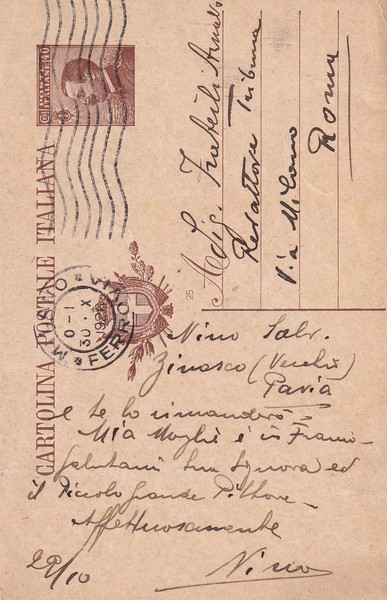 POSTE ITALIANE 40
CARTOLINA POSTALE ITALIANA
MILANO
0-1
30 X
FERROVIA
25
A Sig. Fratelli Arnaldo
Redattore Tribuna
Via Milano
Roma
Nino Salv.
Zinasco (Vecchio)
Pavia
e te lo rimanderò
Mia Moglie è in
Salutami tua Signora ed
il Piccolo grande Pittore
Affettuosamente
Nino
29/10